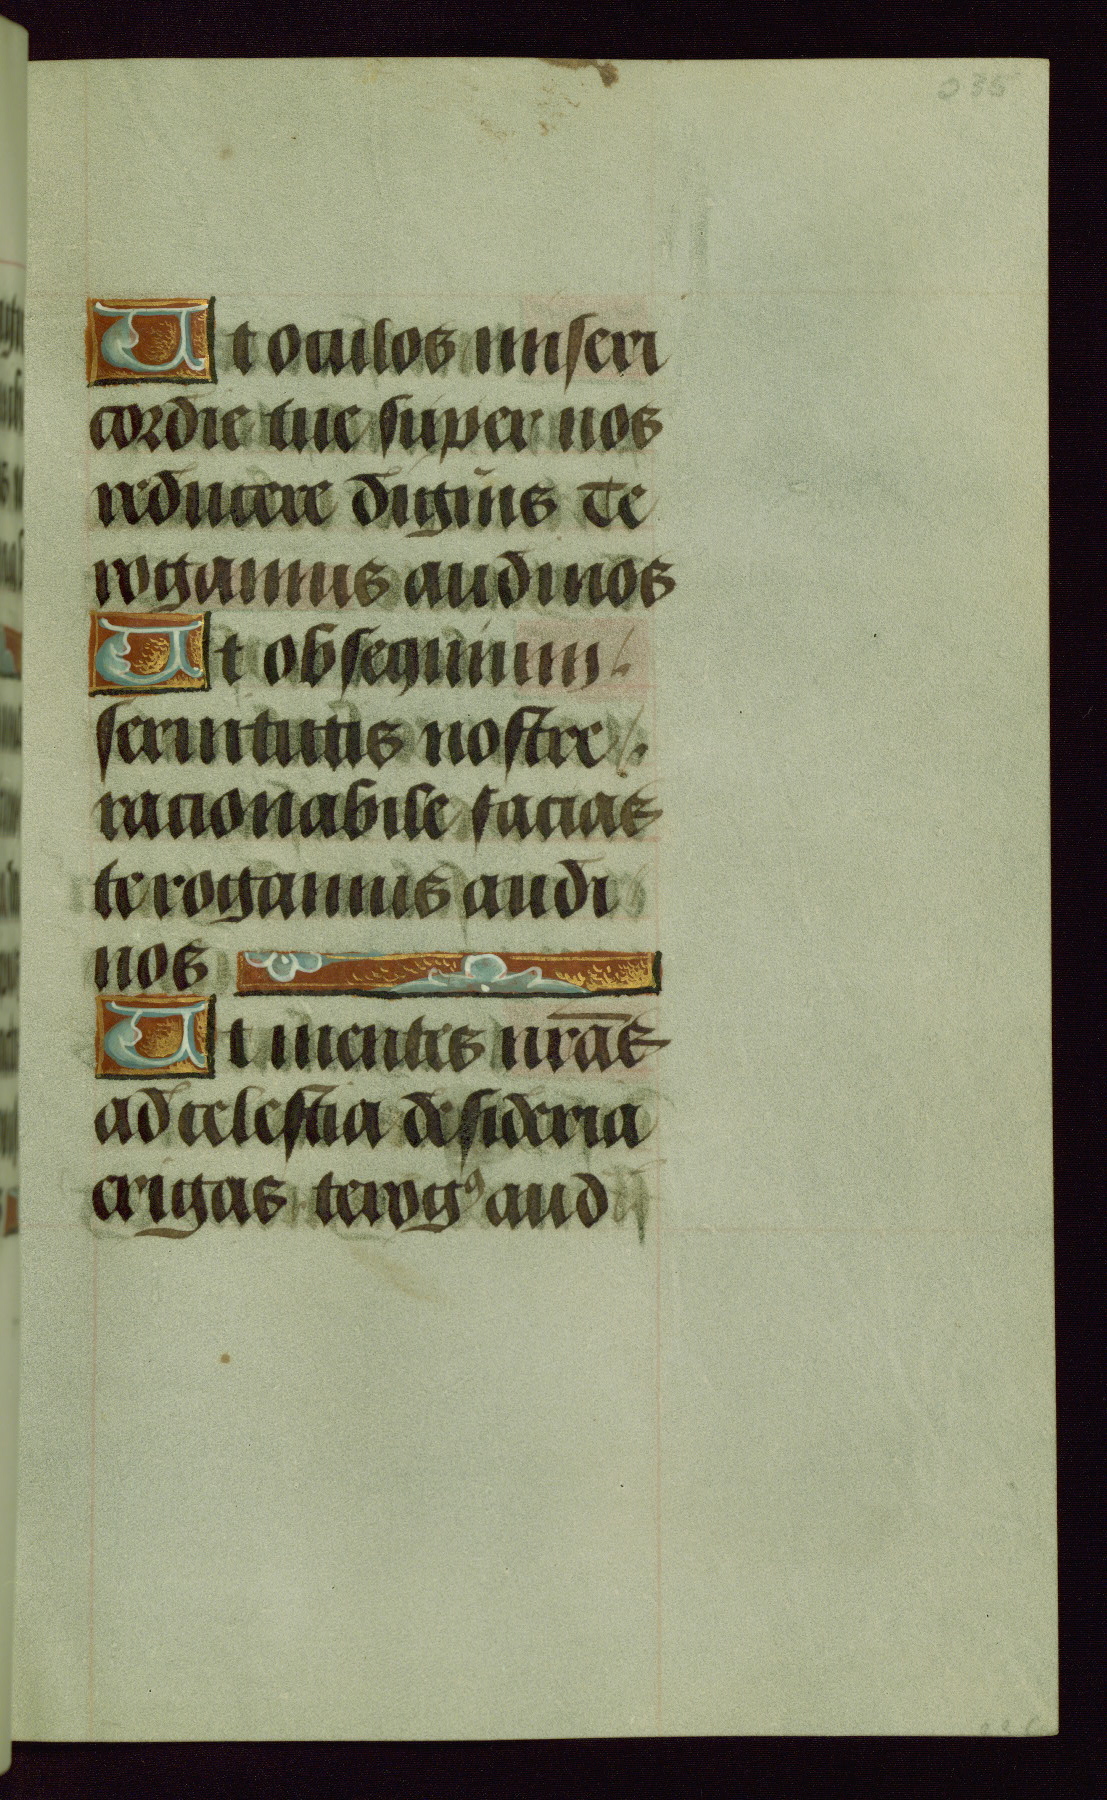 Ut oculos miseri
cordie tue super nos
reducere digñis Te
rogamus audi nos
Ut obsequium
seruitutis nostre
racionabile facias
te rogamus audi
nos
Ut mentes nr̄as
ad celestia desideria
erigas te rogꝰ aud